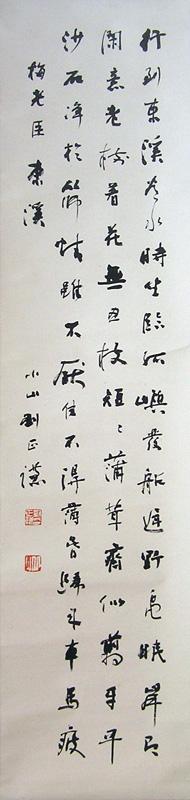 行到東溪看水時坐臨孤嶼發船遲野鳧眠岸有
閑意老樹着花無丑枝短〻蒲茸齊似翦平平
沙石淨於篩情雖不厭住不得薄昏歸來車馬疲
梅堯臣東溪 小山劉正